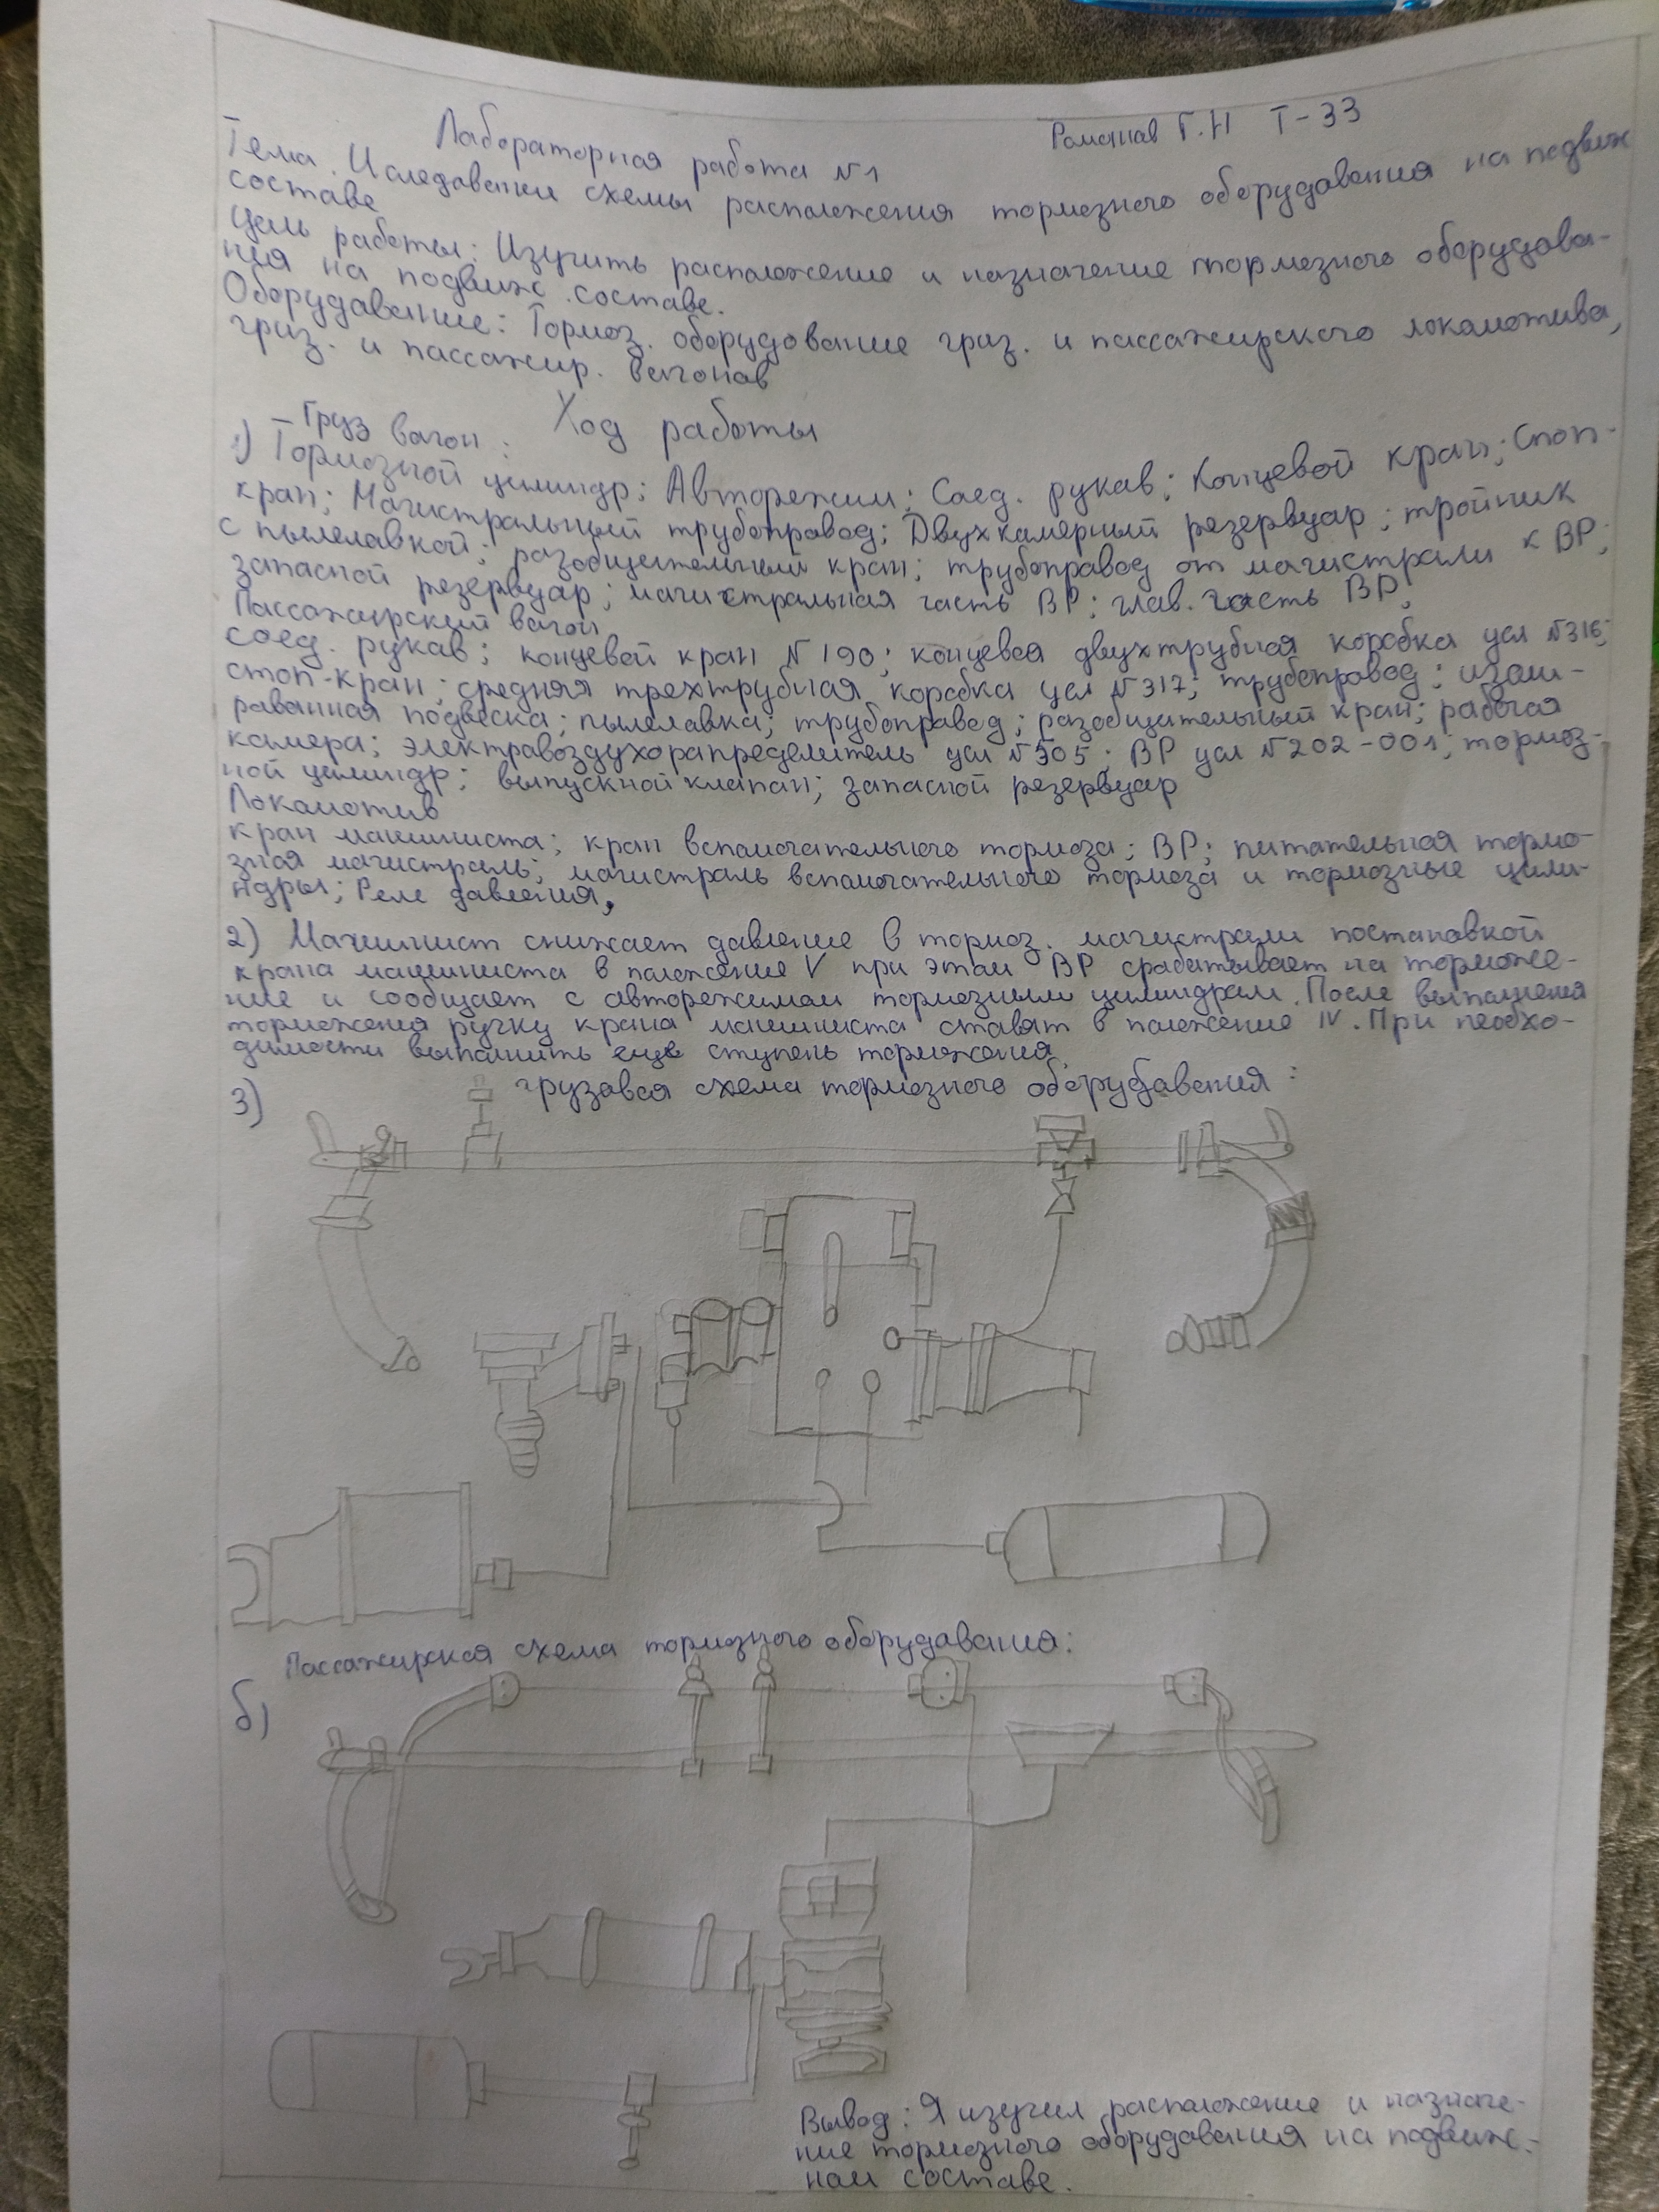 Романов Г.Н Т-33
Лабораторная работа №1
Тема. Иследование схемы расположения тормозного оборудования на подвиж
составе
Цель работы: Изучить расположение и назначение тормозного оборудова-
ния на подвиж. составе.
Оборудование: Тормоз. оборудование груз. и пассажирского локомотива,
груз. и пассажир. вагонов
Ход работы
Груз вагон:
1) Тормозной цилиндр; Авторежим; Соед. рукав; Концевой кран; Стоп-
кран; Магистральный трубопровод; Двухкамерный резервуар; тройник
с пылелавкой; разобщительный кран; трубопровод от магистрали к ВР;
запасной резервуар; магистральная часть ВР; глав. часть ВР.
Пассажирский вагон
соед. рукав; концевой кран №190; концевая двухтрубная коробка усл №316;
стоп-кран; средняя трехтрубная коробка усл №317; трубопровод; изоли-
рованная подвеска; пылелавка; трубопровод; разобщительный кран; рабочая
камера; электровоздухорапределитель усл №305; ВР усл №202-001; тормоз-
ной цилиндр; выпускной клапан; запасной резервуар
Локомотив
кран машиниста; кран вспомогательного тормоза; ВР; питательная тормо-
зная магистраль; магистраль вспомогательного тормоза и тормозные цили-
ндры; Реле давления.
2) Машинист снижает давление в тормоз. магистрали постановкой
крана машиниста в положение V при этом ВР срабатывает на торможе-
ние и сообщает с авторежимом тормозным цилиндрам. После выполнения
торможения ручку крана машиниста ставят в положение IV. При необхо-
димости выполнить еще ступень торможения.
3) грузовая схема тормозного оборудования:
Пассажирская схема тормозного оборудования:
б)
Вывод: Я изучил расположение и назначе-
ние тормозного оборудования на подвиж-
ном составе.